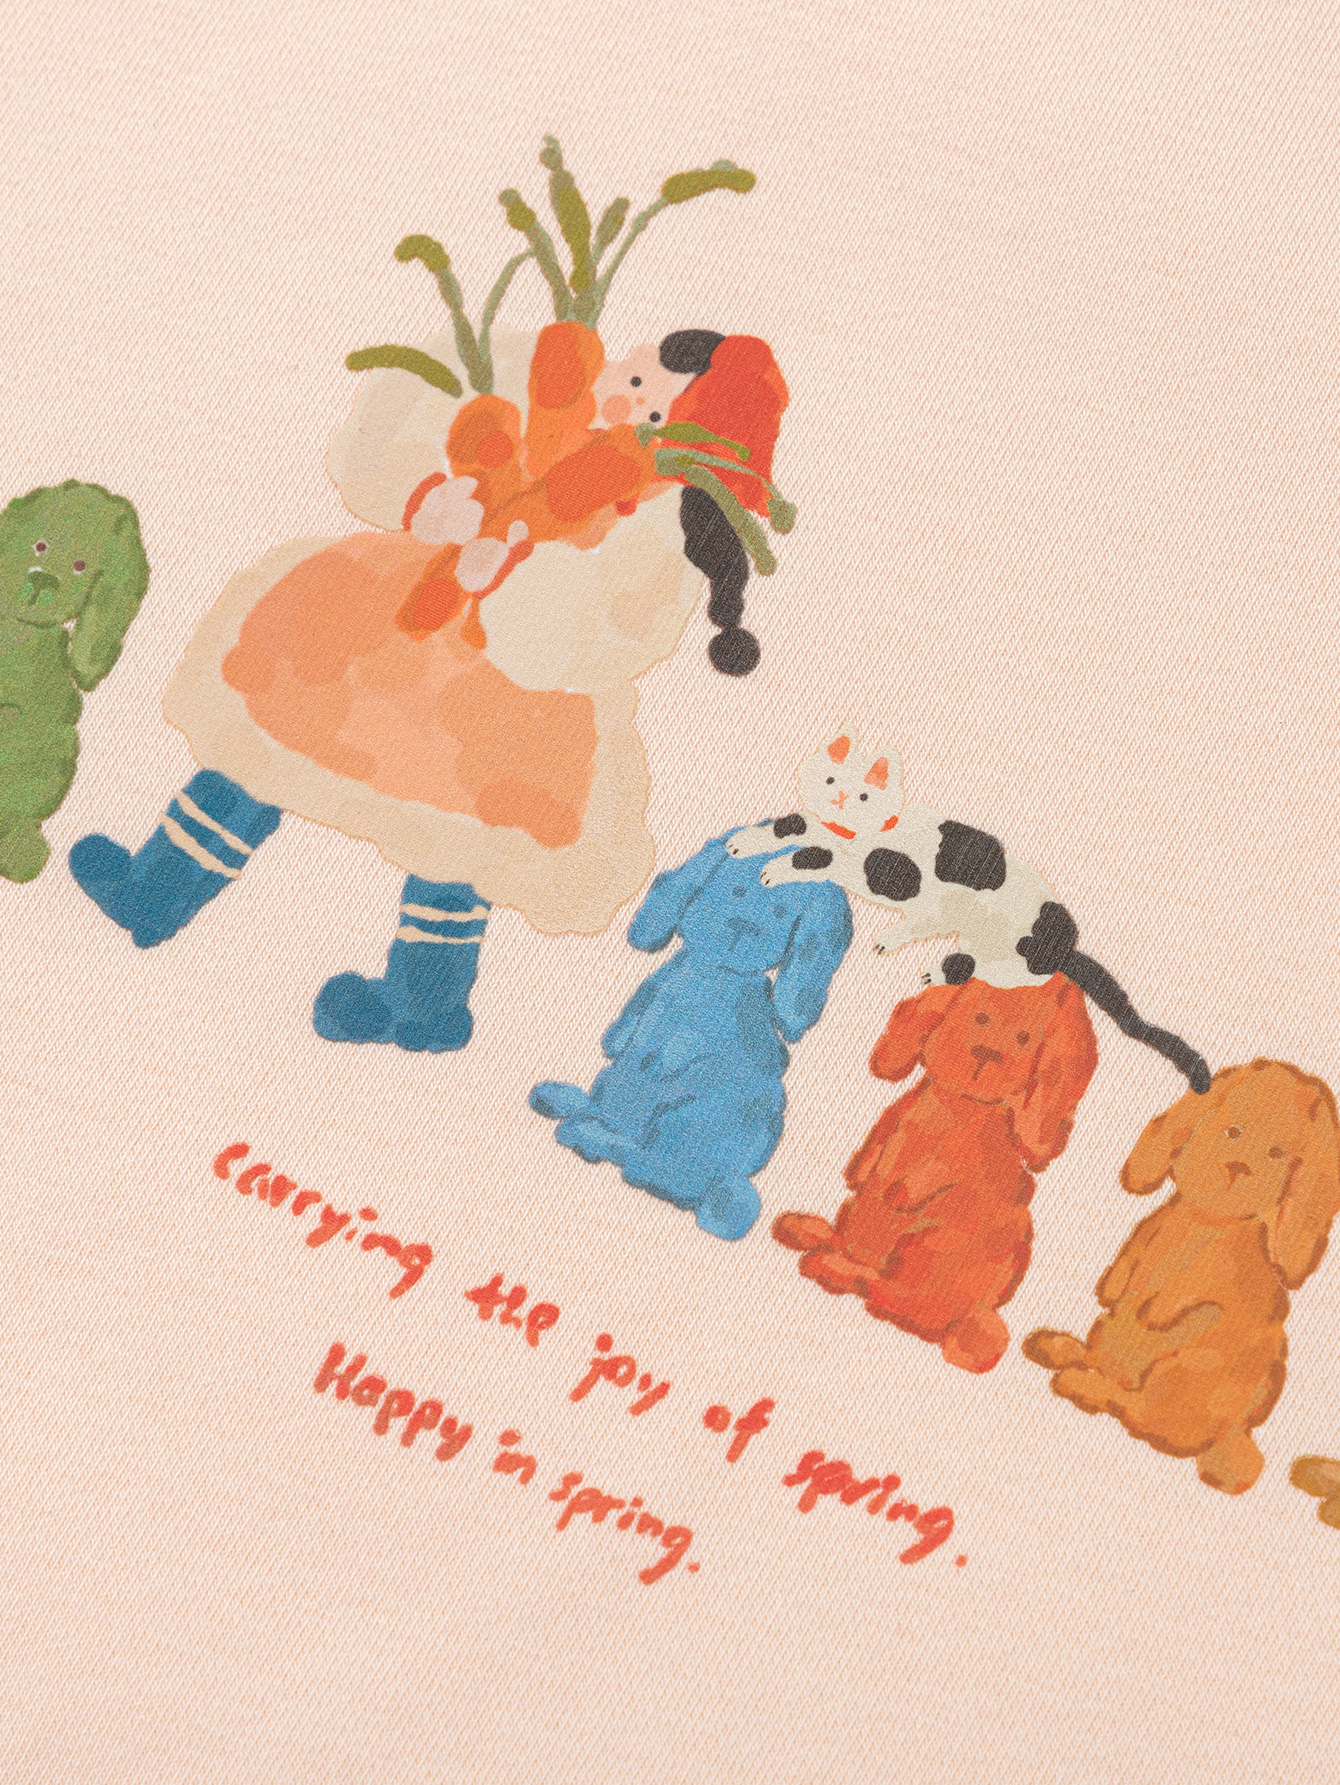 carrying the joy of spring.
Happy in spring.